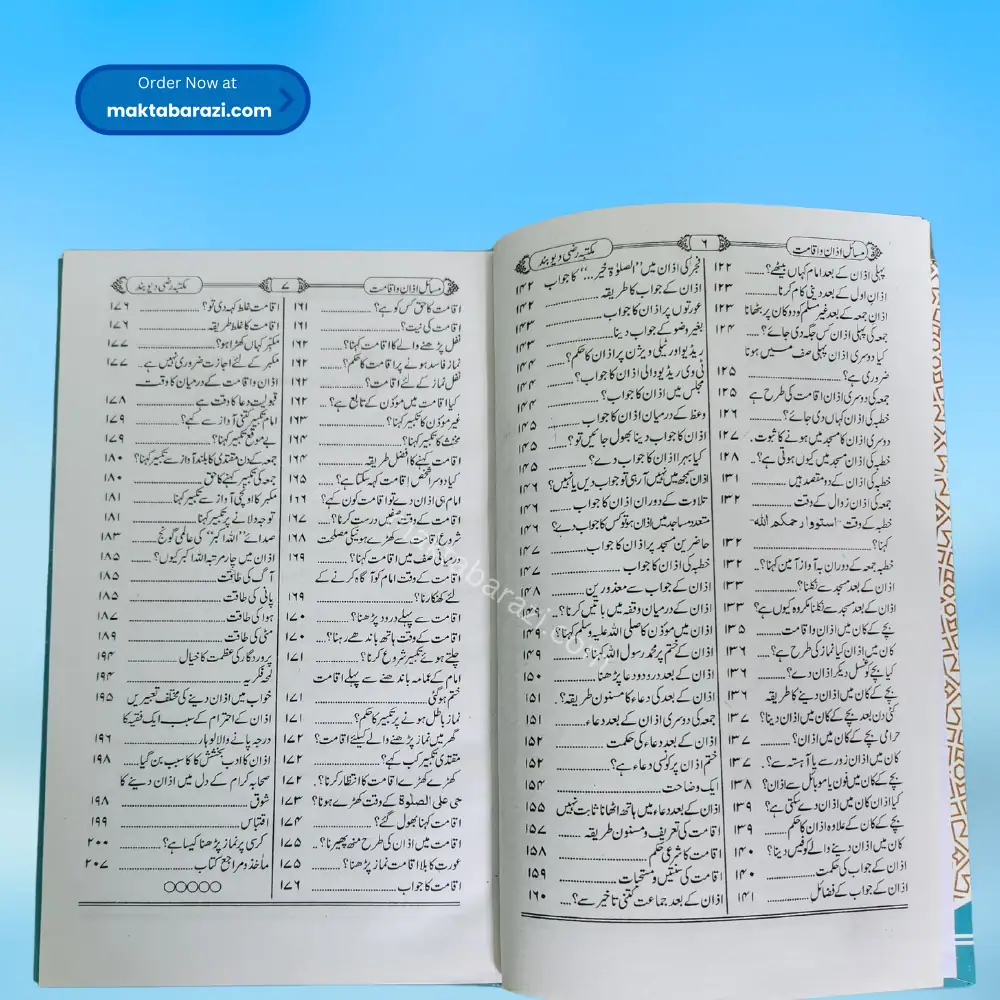 Order Now at
maktabarazi.com
مسائل اذان واقامت
۶
مکتبہ رضی دیوبند
پہلی اذان کے بعد امام کہاں بیٹھے؟ ۱۲۲
اذان اول کے بعد دینی کام کرنا ۱۲۳
اذان جمعہ کے بعد غیر مسلم کو دوکان پر بٹھانا ۱۲۳
جمعہ کی پہلی اذان کس جگہ دی جائے؟ ۱۲۴
کیا دوسری اذان پہلی صف میں ہونا
ضروری ہے؟ ۱۲۵
جمعہ کی دوسری اذان اقامت کی طرح ہے ۱۲۵
خطبہ کی اذان کہاں دی جائے؟ ۱۲۶
دوسری اذان کا مسجد میں ہونے کا ثبوت ۱۲۷
خطبہ کی اذان مسجد میں کیوں ہوتی ہے؟ ۱۲۸
خطبہ کی اذان کے دو مقصد ہیں ۱۳۱
جمعہ کی اذان زوال کے وقت ۱۳۲
خطبہ کے وقت "استووا رحمکم الله"
کہنا؟ ۱۳۲
خطبہ جمعہ کے دوران بہ آواز آمین کہنا؟ ۱۳۲
اذان کے بعد مسجد سے نکلنا؟ ۱۳۳
اذان کے بعد مسجد سے نکلنا مکروہ کیوں ہے؟ ۱۳۳
بچے کے کان میں اذان واقامت ۱۳۵
کان میں اذان کیا نماز کی طرح ہے؟ ۱۳۶
کیا بچے کو غسل دیکر اذان دے؟ ۱۳۶
بچے کے کان میں اذان دینے کا طریقہ ۱۳۶
کئی دن بعد بچے کے کان میں اذان دینا؟ ۱۳۷
حرامی بچے کے کان میں اذان؟ ۱۳۷
بچے کے کان میں اذان زور سے یا آہستہ سے؟ ۱۳۷
بچے کے کان میں فون یا موبائل سے اذان؟ ۱۳۸
کیا اذان کان میں اذان دے سکتی ہے؟ ۱۳۹
بچے کے کان کے علاوہ اذان کا حکم ۱۳۹
کان میں اذان دینے والے کو فیس دینا؟ ۱۴۰
اذان کے جواب کی حکمت ۱۴۰
اذان کے جواب کے فضائل ۱۴۱
فجر کی اذان میں "الصلوٰۃ خیر..." کا جواب ۱۴۲
اذان کے جواب کا طریقہ ۱۴۲
عورتوں پر اذان کا جواب ۱۴۳
بغیر وضو کے جواب دینا ۱۴۳
ریڈیو اور ٹیلی ویژن پر اذان کا حکم؟ ۱۴۴
ٹی وی ریڈیو والی اذان کا جواب؟ ۱۴۴
مجلس میں اذان کا جواب؟ ۱۴۴
وعظ کے درمیان اذان کا جواب ۱۴۵
اذان کا جواب دینا بھول جائیں تو؟ ۱۴۵
کیا بہرا اذان کا جواب دے؟ ۱۴۵
اذان سمجھ میں نہیں آ رہی تو جواب دیں یا نہیں؟ ۱۴۶
تلاوت کے دوران اذان کا جواب ۱۴۶
متعدد مساجد میں اذان ہو تو کس کا جواب دے؟ ۱۴۶
حاضرین مسجد پر اذان کا جواب ۱۴۷
خطبہ کی اذان کا جواب ۱۴۷
اذان کے جواب سے معذورین ۱۴۸
اذان کے درمیان وقفہ میں باتیں کرنا؟ ۱۴۸
اذان میں مؤذن کا صلی اللہ علیہ وسلم کہنا؟ ۱۴۹
اذان کے ختم پر محمد رسول اللہ کہنا؟ ۱۴۹
اذان کے بعد درود ودعا پڑھنا ۱۵۰
اذان کے بعد کی دعاء کا مسنون طریقہ؟ ۱۵۱
جمعہ کی دوسری اذان کے بعد دعاء ۱۵۱
اذان کے بعد دعاء کی حکمت ۱۵۲
ختم اذان پر کونسی دعاء ہے؟ ۱۵۲
ایک وضاحت ۱۵۴
اذان کے بعد دعاء میں ہاتھ اٹھانا ثابت نہیں ۱۵۵
اقامت کی تعریف ومسنون طریقہ ۱۵۷
اقامت کا شرعی حکم ۱۵۸
اقامت کی سنتیں ومستحبات ۱۵۹
اذان کے بعد جماعت کتنی تاخیر سے؟ ۱۶۰
مسائل اذان واقامت
۷
مکتبہ رضی دیوبند
اقامت کا حق کس کو ہے؟ ۱۶۱
اقامت کی نیت؟ ۱۶۱
نفل پڑھنے والے کا اقامت کہنا؟ ۱۶۲
نماز فاسد ہونے پر اقامت کا حکم؟ ۱۶۲
نفل نماز کے لئے اقامت؟ ۱۶۲
کیا اقامت میں مؤذن کے تابع ہے؟ ۱۶۲
غیر مؤذن کا تکبیر کہنا؟ ۱۶۳
مخنث کا تکبیر کہنا؟ ۱۶۴
اقامت کہنے کا افضل طریقہ ۱۶۴
کیا دوسرا شخص اقامت کہہ سکتا ہے؟ ۱۶۵
امام ہی اذان دے تو اقامت کون کہے؟ ۱۶۶
اقامت کے وقت صفیں درست کرنا؟ ۱۶۷
شروع اقامت سے کھڑے ہونیکی مصلحت ۱۶۸
درمیانی صف میں اقامت کہنا؟ ۱۶۹
اقامت کے وقت امام کو آگاہ کرنے کے
لئے کھنکارنا؟ ۱۶۹
اقامت سے پہلے درود پڑھنا؟ ۱۷۰
اقامت کے وقت ہاتھ باندھے رہنا؟ ۱۷۰
چلتے ہوئے تکبیر شروع کرنا؟ ۱۷۱
امام کے عمامہ باندھنے سے پہلے اقامت
ختم ہوگئی ۱۷۱
نماز باطل ہونے پر تکبیر کا حکم؟ ۱۷۱
گھر میں نماز پڑھنے والے کیلئے اقامت؟ ۱۷۲
مقتدی تکبیر کب کہے؟ ۱۷۲
کھڑے کھڑے اقامت کا انتظار کرنا؟ ۱۷۲
حی علی الصلوٰۃ کے وقت کھڑے ہونا؟ ۱۷۳
اقامت کہنا بھول گئے؟ ۱۷۴
اقامت میں اذان کی طرح منھ پھیرنا؟ ۱۷۵
عورت کا بلا اقامت نماز پڑھنا؟ ۱۷۵
اقامت کا جواب ۱۷۶
اقامت غلط کہہ دی تو؟ ۱۷۶
اقامت کا غلط طریقہ ۱۷۶
مکبّر کہاں کھڑا ہو؟ ۱۷۷
مکبّر کے لئے اجازت ضروری نہیں ہے ۱۷۷
اذان واقامت کے درمیان کا وقت
قبولیت دعا کا وقت ہے ۱۷۸
امام تکبیر کتنی آواز سے کہے؟ ۱۷۹
بے موقع تکبیر کہنا؟ ۱۷۹
جمعہ کے دن مقتدی کا بلند آواز سے تکبیر کہنا؟ ۱۸۰
جمعہ کی تکبیر کہنے کا حق ۱۸۰
مکبّر کا اونچی آواز سے تکبیر کہنا ۱۸۱
توجہ دلانے پر تکبیر کہنا ۱۸۱
صدائے "اللہ اکبر" کی عالمی گونج ۱۸۳
اذان میں چار مرتبہ اللہ اکبر کیوں؟ ۱۸۵
آگ کی طاقت ۱۸۵
پانی کی طاقت ۱۸۵
ہوا کی طاقت ۱۸۷
مٹی کی طاقت ۱۸۹
پروردگار کی عظمت کا خیال ۱۹۴
لمحہ فکریہ ۱۹۴
خواب میں اذان دینے کی مختلف تعبیریں ۱۹۵
اذان کے احترام کے سبب ایک فقیہ کا
درجہ پانے والا لوہار ۱۹۶
اذان کا ادب بخشش کا سبب بن گیا ۱۹۸
صحابہ کرام کے دل میں اذان دینے کا
شوق ۱۹۸
اقتباس ۱۹۹
کرسی پر نماز پڑھنا کیسا ہے؟ ۲۰۰
مآخذ ومراجع کتاب ۲۰۷
maktabarazi.com